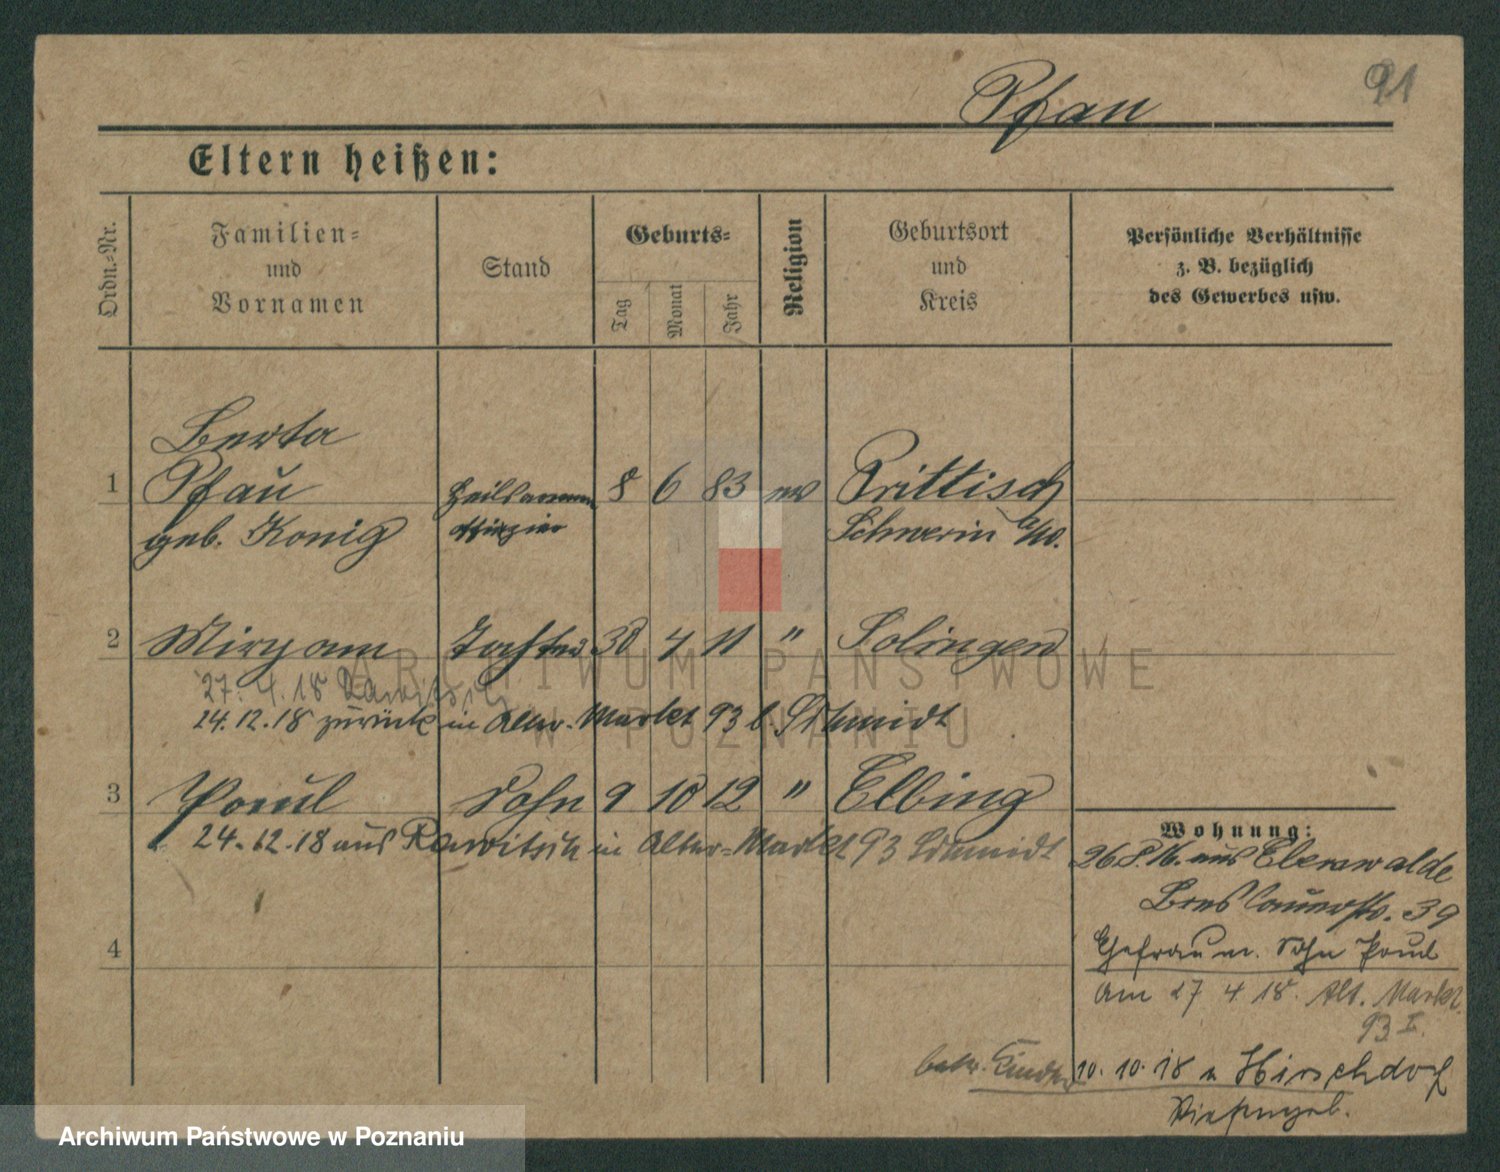 91
Pfau
Eltern heißen:
Ordn.-Nr.
Familien-
und
Vornamen
Stand
Geburts-
Tag
Monat
Jahr
Religion
Geburtsort
und
Kreis
Persönliche Verhältnisse
z. B. bezüglich
des Gewerbes usw.
Berta
1 Pfau 8 6 83 ev Prittisch
geb. König Schwerin a/W.
2 Miryam Tochter 30 4 11 " Solingen
27. 4. 18 Rawitsch
24.12.18 zurück in Alter Markt 93 b. Schmidt
3 Paul Sohn 9 10 12 " Elbing
24.12.18 aus Rawitsch in Alter Markt 93 Schmidt
Wohnung:
aus Eberswalde
Breslauerstr. 39
Ehefrau m. Sohn Paul
4
am 27 4 18. Alt. Markt
93 I.
10. 10. 18 n Hirschdorf
ARCHIWUM PAŃSTWOWE
W POZNANIU
Archiwum Państwowe w Poznaniu